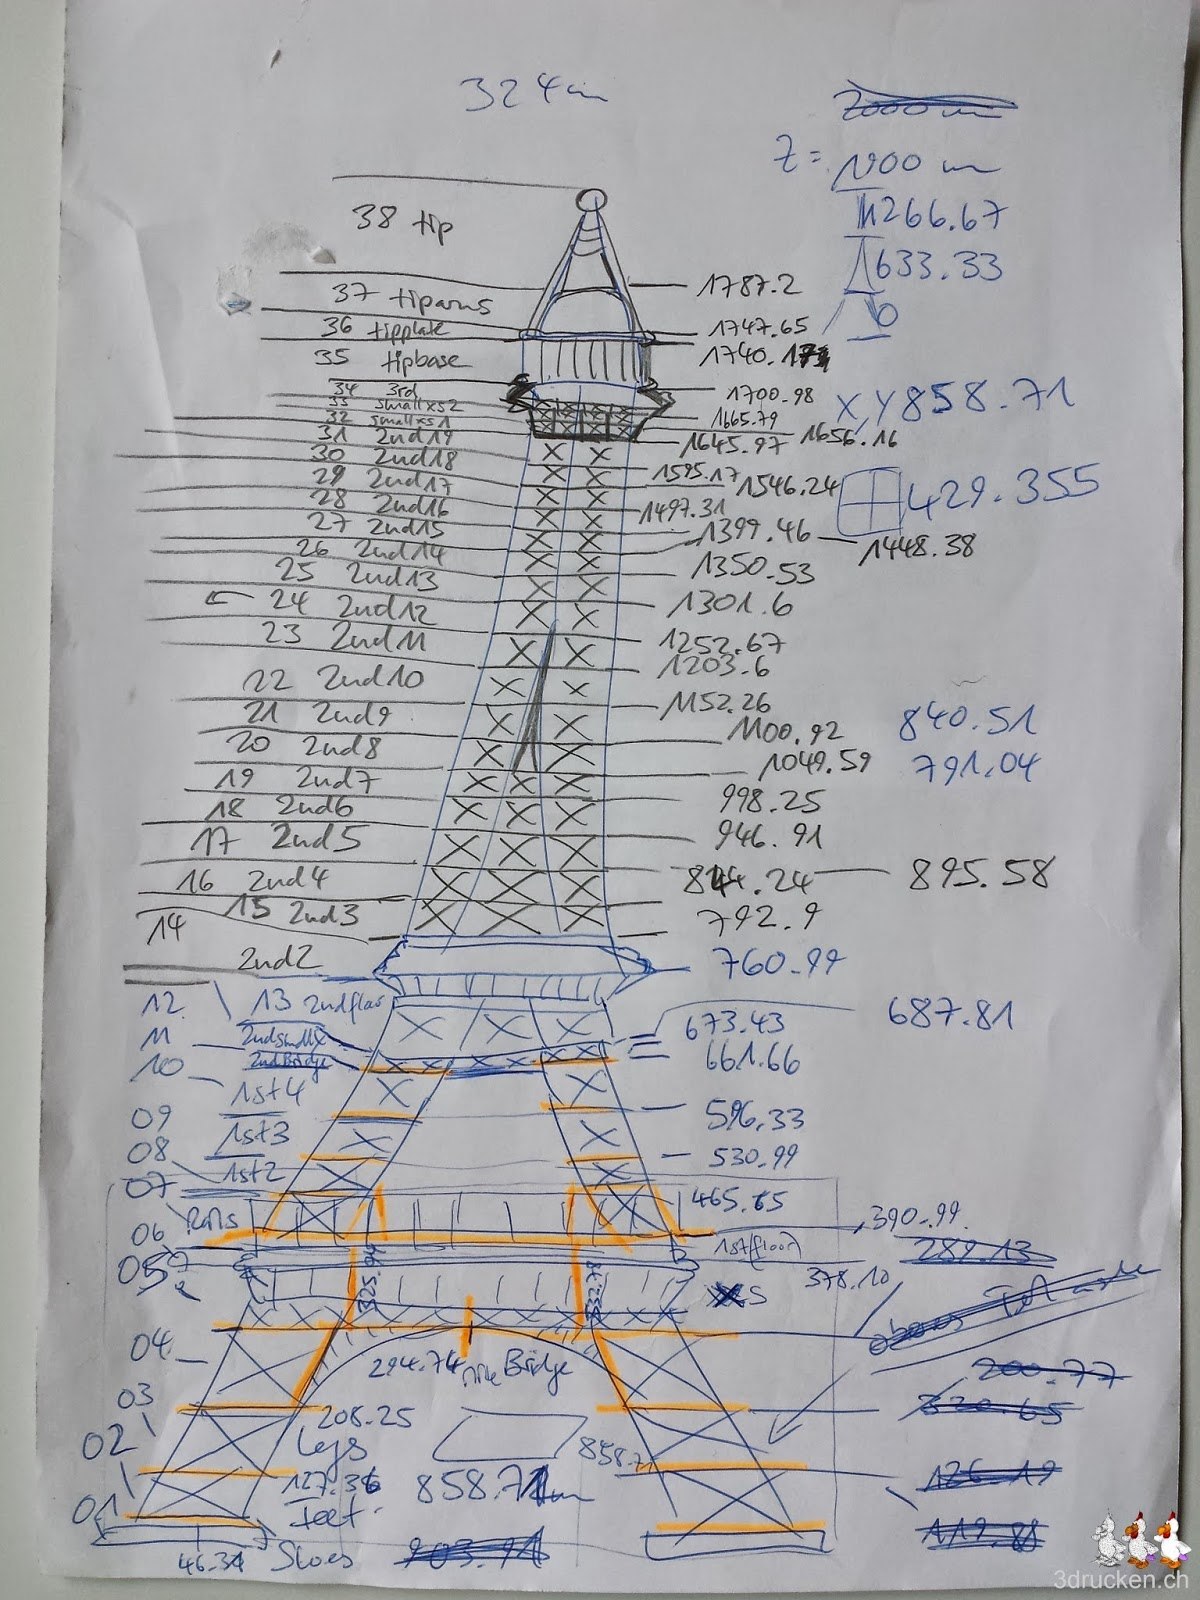 324m
Z= 1900 m
1266.67
633.33
0
38 tip
1787.2
37 tiparms
1747.65
36 tipplate
1740.1
35 tipbase
1700.98
XY 858.71
34 3rd
33 smallxs2
1665.79
32 smallxs1
1656.16
31 2nd19
1645.97
30 2nd18
1595.17
29 2nd17
1546.24
429.355
28 2nd16
1497.31
27 2nd15
1399.46
1448.38
26 2nd14
1350.53
25 2nd13
1301.6
24 2nd12
1252.67
23 2nd11
1203.6
22 2nd10
1152.26
21 2nd9
1100.92
840.51
20 2nd8
1049.59
791.04
19 2nd7
998.25
18 2nd6
946.91
17 2nd5
844.24
895.58
16 2nd4
792.9
15 2nd3
14
2nd2
760.99
13 2ndfloor
12
673.43
687.81
11 2ndsmallx
661.66
10 2ndBridge
1st4
596.33
09
1st3
530.99
08
1st2
07
465.65
Rails
390.99
06
1stfloor
289.13
05
378.10
04
294.74
Bridge
200.77
03
208.25
330.65
Legs
02
858.71
127.36
858.71m
126.19
01
feet
119.81
46.34
Shoes
903.91
3drucken.ch